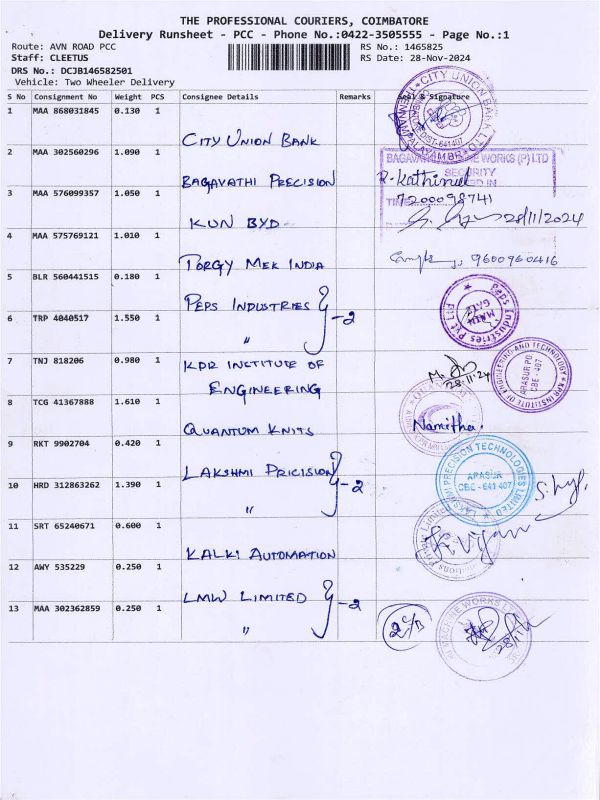 THE PROFESSIONAL COURIERS, COIMBATORE
Delivery Runsheet - PCC - Phone No.:0422-3505555 - Page No.:1
Route: AVN ROAD PCC
RS No.: 1465825
Staff: CLEETUS
RS Date: 28-Nov-2024
DRS No.: DCJB146582501
Vehicle: Two Wheeler Delivery
S No Consignment No Weight PCS Consignee Details Remarks Seal & Signature
1 MAA 868031845 0.130 1 CITY UNION BANK
CITY UNION BANK LTD
DIST-641407
2 MAA 302560296 1.090 1 BAGAVATHI PRECISION
WORKS (P) LTD
SECURITY
TIME
7200098741
3 MAA 576099357 1.050 1 KUN BYD
28/11/2024
4 MAA 575769121 1.010 1 TORGY MEK INDIA
9600960416
5 BLR 560441515 0.180 1 PEPS INDUSTRIES } -2
Peps Industries Pvt Ltd
MAIN GATE
6 TRP 4040517 1.550 1 "
7 TNJ 818206 0.980 1 KPR INSTITUTE OF
ENGINEERING
28.11.24
KPR INSTITUTE OF ENGINEERING AND TECHNOLOGY
ARASUR PO
CBE - 407
8 TCG 41367888 1.610 1 QUANTUM KNITS
Namitha.
9 RKT 9902704 0.420 1 LAKSHMI PRICISION } -2
LAKSHMI PRECISION TECHNOLOGIES LIMITED
ARASUR
CBE - 641 407
10 HRD 312863262 1.390 1 "
11 SRT 65240671 0.600 1 KALKI AUTOMATION
12 AWY 535229 0.250 1 LMW LIMITED } -2
13 MAA 302362859 0.250 1 "